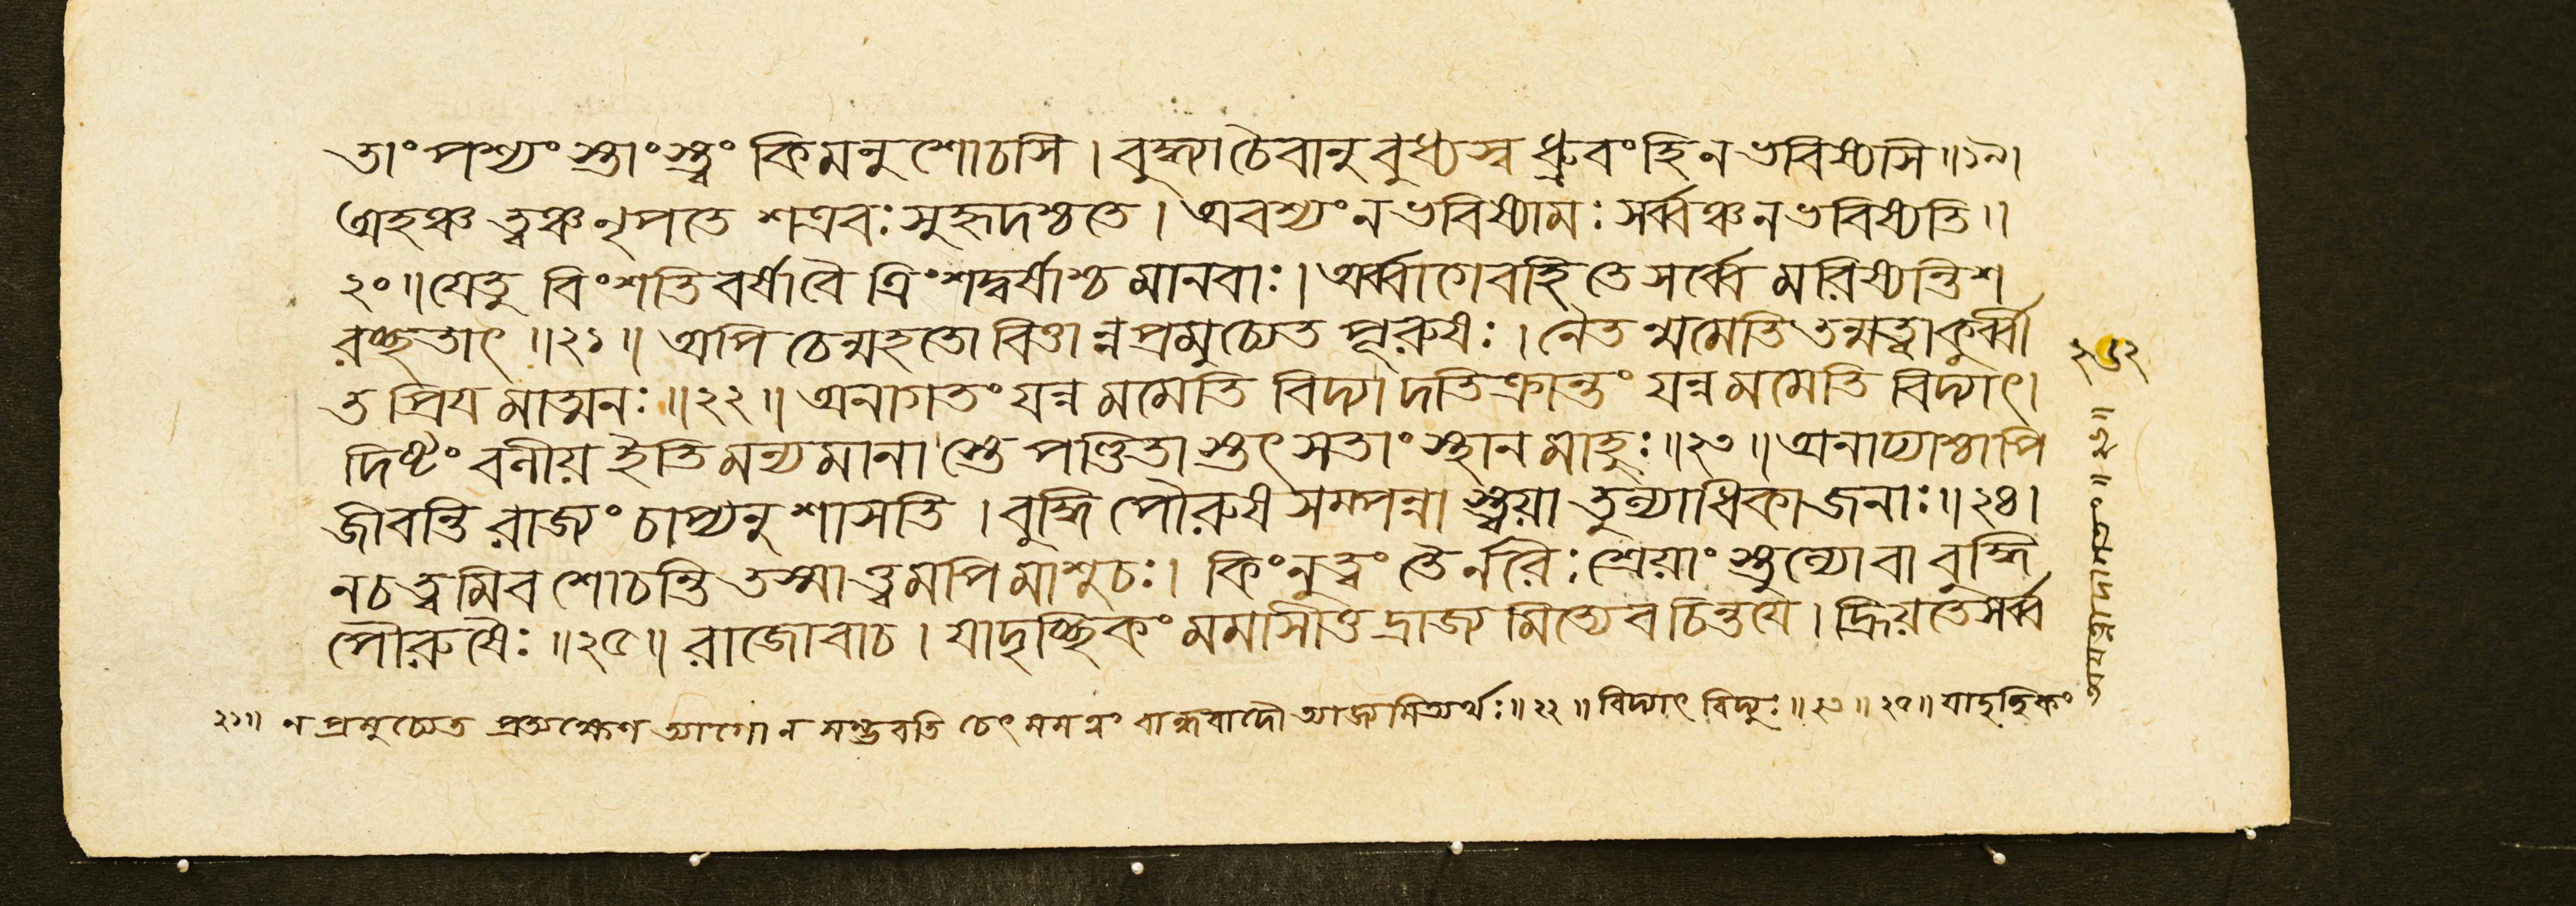 তাং পশ্যং স্তাং স্ত্বং কিমনুশোচসি । বুদ্ধ্যা চৈবানুবুধ্যস্ব ধ্রুবং হি ন ভবিষ্যসি ॥১৯।
অহঞ্চ ত্বঞ্চ নৃপতে শত্রবঃ সুহৃদশ্চতে । অবশ্যং ন ভবিষ্যামঃ সর্ব্বঞ্চ ন ভবিষ্যতি ॥
২০॥ যেতু বিংশতি বর্ষা বৈ ত্রিংশদ্বর্ষাশ্চ মানবাঃ । অর্ব্বাগেব হি তে সর্ব্বে মরিষ্যন্তি শ
রচ্ছতাৎ ॥২১॥ অপি চেন্মহতো বিত্তান্ন প্রমুচ্যেত পূরুষঃ । নৈতন্মমেতি তন্মত্বা কুর্ব্বী
ত প্রিয়মাত্মনঃ ॥২২॥ অনাগতং যন্ন মমেতি বিদ্যাদতিক্রান্তং যন্ন মমেতি বিদ্যাৎ।
দিষ্টং বলীয় ইতি মন্যমানা স্তে পণ্ডিতা স্তৎ সতাং স্থানমাহুঃ ॥২৩॥ অনাঢ্যাশ্চাপি
জীবন্তি রাজ্যং চাপ্যনুশাসতি । বুদ্ধি পৌরুষ সম্পন্না স্ত্বয়া তুল্যাধিকা জনাঃ ॥২৪।
নচ ত্বমিব শোচন্তি তস্মাত্ত্বমপি মাশুচঃ। কিংনুত্বং তৈর্নরৈঃ শ্রেয়াং স্তুল্যো বা বুদ্ধি
পৌরুষৈঃ ॥২৫॥ রাজোবাচ । যাদৃচ্ছিকং মমাসীত্তদ্রাজ্যমিত্যেব চিন্তয়ে । হ্রিয়তে সর্ব্ব
২১॥ ন প্রমুচ্যেত প্রত্যক্ষেণ ত্যাগো ন সম্ভবতি চেৎ মমত্বং ত্যাজ্যমিত্যর্থঃ ॥২২॥ বিদ্যাৎ বিদ্যুঃ ॥২৩॥২৫॥ যাদৃচ্ছিকং